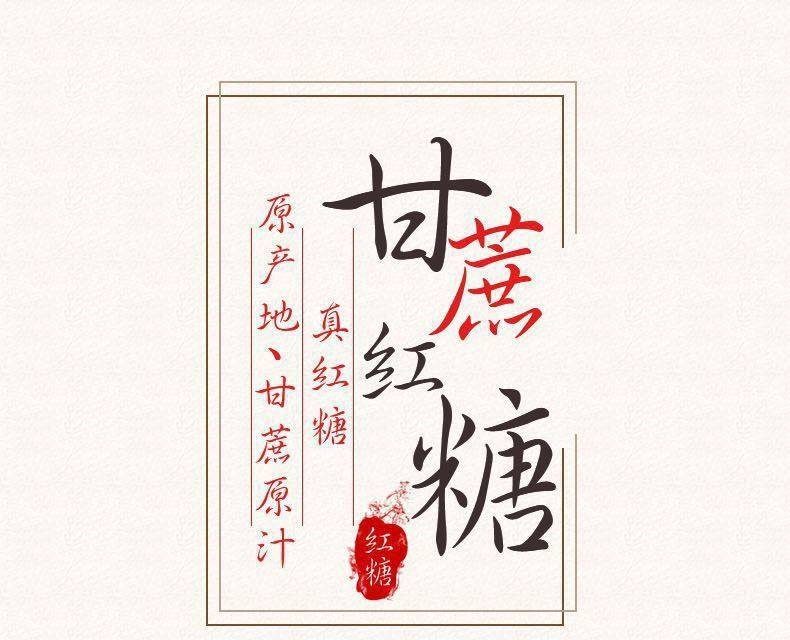 甘蔗
红糖
真红糖
原产地、甘蔗原汁
红糖